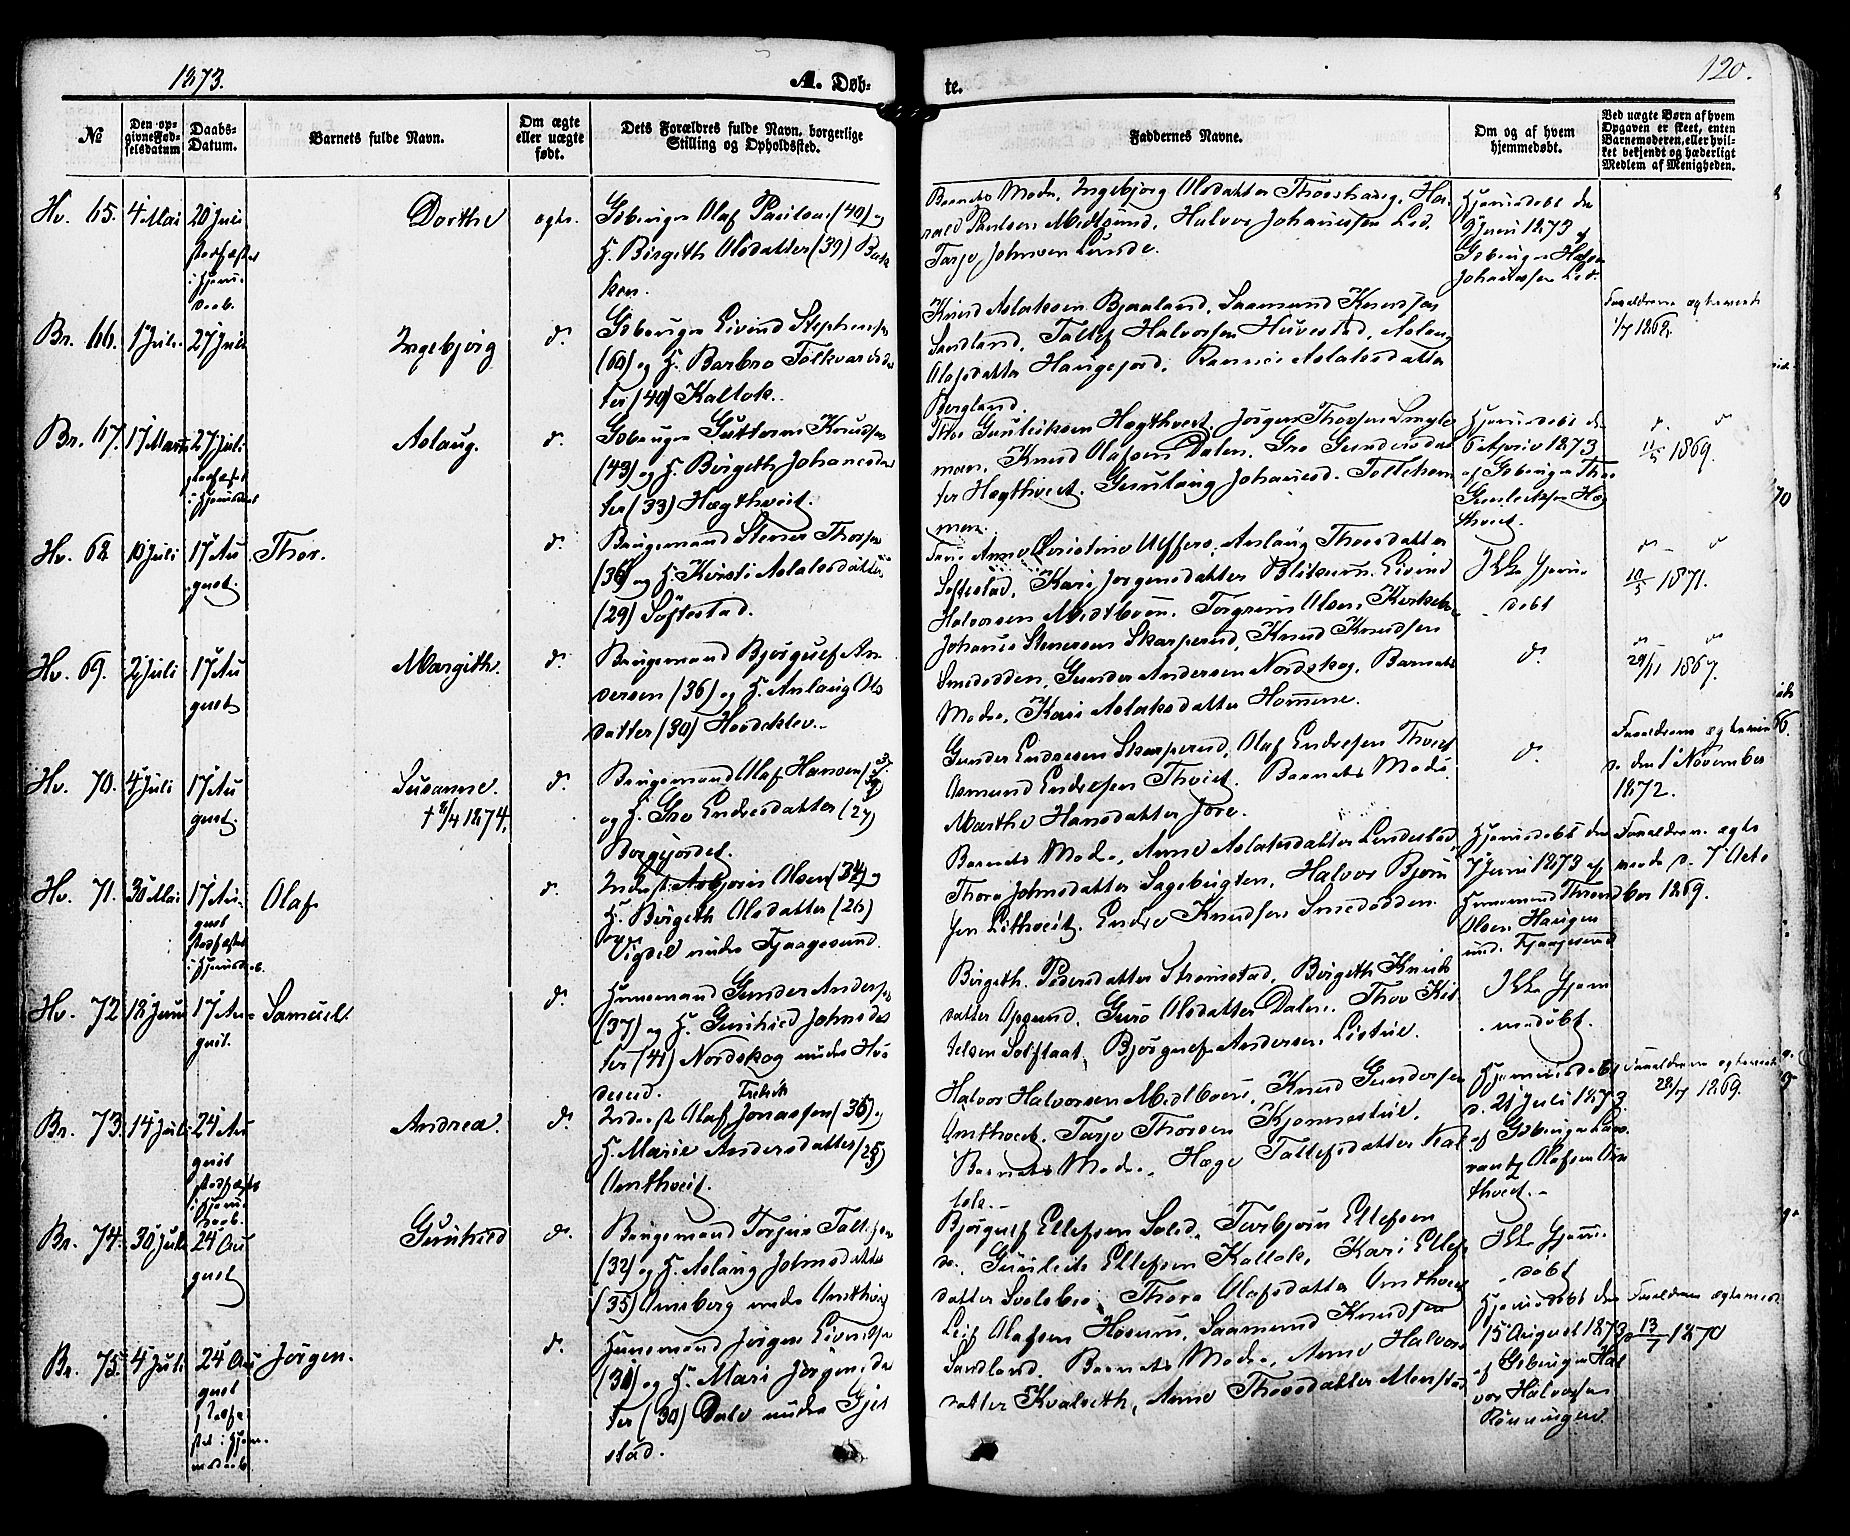 1873.
A. Døb-
te.
120.
№
Den op-
givne Fød-
selsdatum
Daabs-
Datum.
Barnets fulde Navn.
Om ægte
eller uægte
født.
Dets Forældres fulde Navn, borgerlige
Stilling og Opholdssted.
Faddernes Navne.
Om og af hvem
hjemmedøbt.
Ved uægte Børn af hvem
Opgaven er skeet, enten
Barnemoderen, eller hvil-
ket bekjendt og hæderligt
Medlem af Menigheden.
Hv. 65. 4 Mai 20 Juli
Dorthe
ægte.
Gbruger Olaf Paulsen (40) og
H. Birgith Olsdatter (39) Bak-
ken.
Barnets Moder, Ingebjørg Olsdatter Thorshaug, Ha-
rald Paulsen Midtsund, Halvor Johannesen Lid,
Tarje Johnsen Lunde.
Hjemedøbt den
9 Juni 1873 af
Gbruger
Johannesen Lid.
Br. 66. 1 Juli 27 Juli
Ingebjørg
d.
Gbruger Eivind Stephensen
(60) og H. Barbro Folkvardsdat-
ter (40) Kallok.
Knud Aslaksen Bjaaland, Saamund Knudsen
Sandland, Tallef Halvorsen Huvestad, Aslaug
Olafsdatter Haugefjord, Aslaksdatter
Bergland.
Forældrene ægteviede
1/7 1862.
Br. 67. 17 Marts 27 Juli
Aslaug.
d.
Gbruger Guttorm Knudsen
(43) og H. Birgith Johannesdat-
ter (33) Hægthveit.
Thor Gunleiksen Hægthveit, Jørgen Thorsen
Knud Olafsen Dalen, Gro Gundersdat-
ter Hægthveit, Gunlaug Johannesd.
Hjemedøbt den
6 April 1873
af Gbruger Thor
Gunleiksen Hæg-
thveit.
1869.
Hv. 68. 10 Juli 17 Au-
gust.
Thor.
d.
Brugemand Stener Thorsen
(36) og H. Kirsti Aslaksdatter
(29) Søftestad.
Aslaug Thorsdatter
Søftestad, Kari Jørgensdatter Eivind
Halvorsen Midtbøen, Torgrim Olsen
Ikke Hjem-
døbt
10/5 1871.
Hv. 69. 2 Juli 17 Au-
gust
Margith.
d.
Brugemand Bjørgulf An-
dersen (36) og H. Aslaug Ols-
datter (30)
Johannes Stenersen Skarperud, Knud Knudsen
Smedodden, Gunder Andersen Nordskog, Barnets
Moder, Kari Aslaksdatter Homme.
d.
29/11 1867.
Hv. 70. 4 Juli 17 Au-
gust.
Susanne.
† 8/4 1874.
d.
Brugemand Olaf Hansen
og H. Gro Endresdatter (27)
Borgejordet.
Gunder Endresen Skarperud, Olaf Endresen Thveit
Asmund Endresen Thveit, Barnets Moder,
Marthe Hansdatter Jore.
d.
Forældrene ægtevie-
de den 1 November
1872.
Hv. 71. 30 Mai 17 Au-
gust
Olaf
d.
Inderst Asbjørn Olsen (34) og
H. Birgith Olsdatter (26)
Vigdel under Fjaagesund.
Barnets Moder, Anne Aslaksdatter Lindestad,
Thora Johnsdatter Sagebugten, Halvor Bjørn-
sen Lithveit, Endre Knudsen Smedodden.
Hjemedøbt den
7 Juni 1873 af
Husmand Thrond
Olsen Haugen
und. Fjaagesund
Forældrene ægte-
viede d. 7 Octo-
ber 1869.
Hv. 72 18 Juni 17 Au-
gust.
Samuel.
d.
Husmand Gunder Andersen
(37) og H. Gunhild Johnsdat-
ter (41) Nordskog under Hvi-
deseid.
Birgith Pedersdatter Strømstad, Birgith Knuds-
datter Opsund, Guro Olsdatter Dalen, Thor Kit-
telsen Solflaat, Bjørgulf Andersen Listul.
Ikke Hjem-
medøbt.
Br. 73. 14 Juli 24 Au-
gust
Andrea.
d.
Inderst Olaf Fredrik Jonassen (35) og
H. Marie Andersdatter (25)
Omthveit.
Halvor Halvorsen Midtbøen, Knud Gundersen
Omthveit, Tarje Thorsen Kjønnestul.
Barnets Moder, Hæge Tallefsdatter Kal-
lok.
Hjemmedøbt
d. 21 Juli 1873
af Gbruger
Olafsen Om-
thveit.
Forældrene ægteviede
28/7 1869.
Br. 74. 30 Juli 24 Au-
gust
Gunhild
d.
Brugemand Torjus Tallefsen
(32) og H. Aslaug Johnsdatter
(35) Omsberg under Omthveit
Bjørgulf Ellefsen Solid, Torbjørn Ellefsen
do., Gunleik Ellefsen Kallok, Kari Ellefs-
datter Svolsbro, Thora Olafsdatter Omthveit
Ikke Hjem-
døbt
Br. 75. 4 Juli 24 Au-
gust
Jørgen.
d.
Husmand Jørgen Eivindsen
(31) og H. Mari Jørgensdat-
ter (30) Dale under Gjer-
stad.
Leif Olafsen Hosum, Saamund Knudsen
Sandland, Barnets Moder, Anne Halvors-
datter Kvalseth, Anne Thorsdatter
Hjemedøbt den
15 August 1873
af Gbruger Hal-
vor Halvorsen
Rønningen
Forældrene ægteviede
13/7 1870